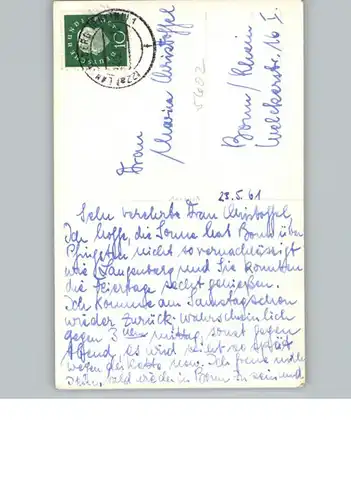 10
Frau
Maria Christoffel
Bonn/Rhein
Welckerstr. 16 I.
5602
23.5.61
Sehr verehrte Frau Christoffel,
Ich hoffe, die Sonne hat Bonn über
Pfingsten nicht so vernachlässigt
wie Langenberg und Sie konnten
die Feiertage recht genießen.
Ich komme am Samstag schon
wieder zurück. Wahrscheinlich
gegen 3 Uhr mittag, sonst gegen
Abend, es wird nicht so spät
wegen Ich freue mich
bald wieder in Bonn zu sein und